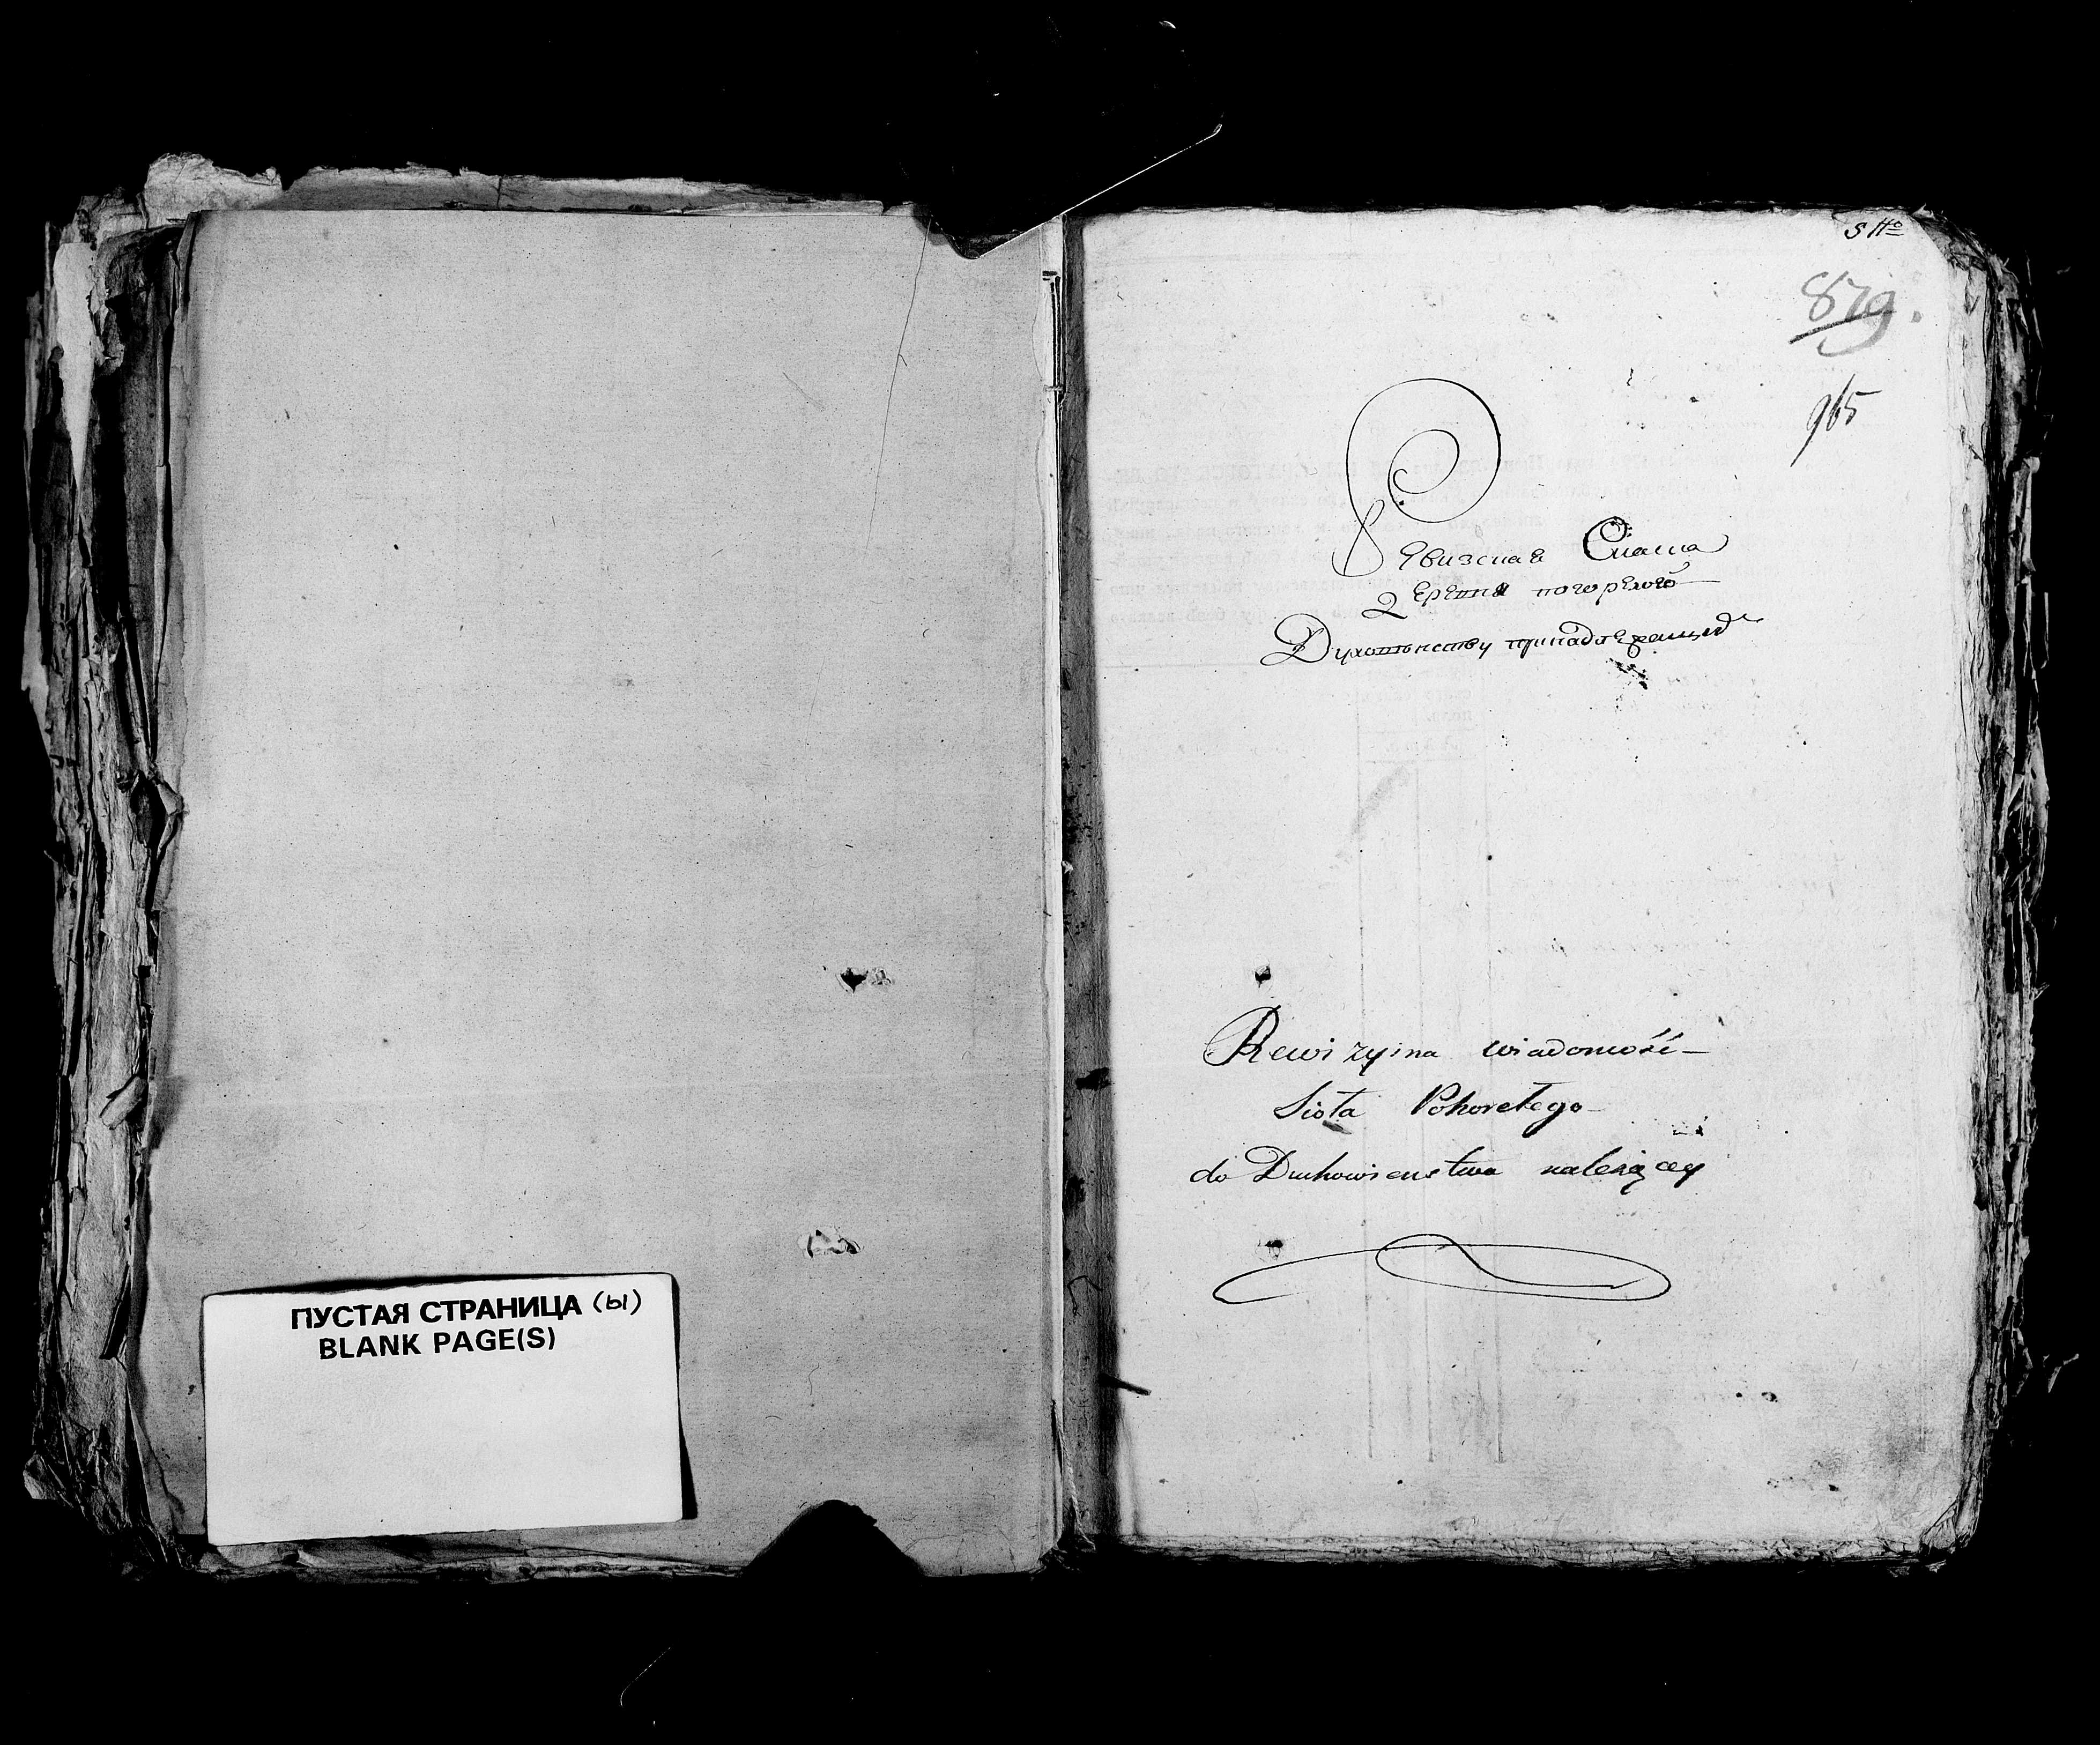 ПУСТАЯ СТРАНИЦА (Ы)
BLANK PAGE(S)
879.
965
Ревизская Скаска
Деревни погорелого
Духовенству принадлежащей
Rewizyina wiadomość
Sioła Pohorełego
do Duchowienstwa należącey